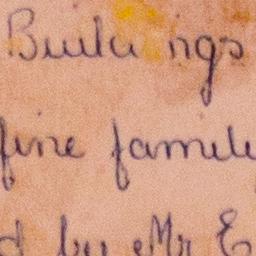 Buildings
fine family
d by Mr E